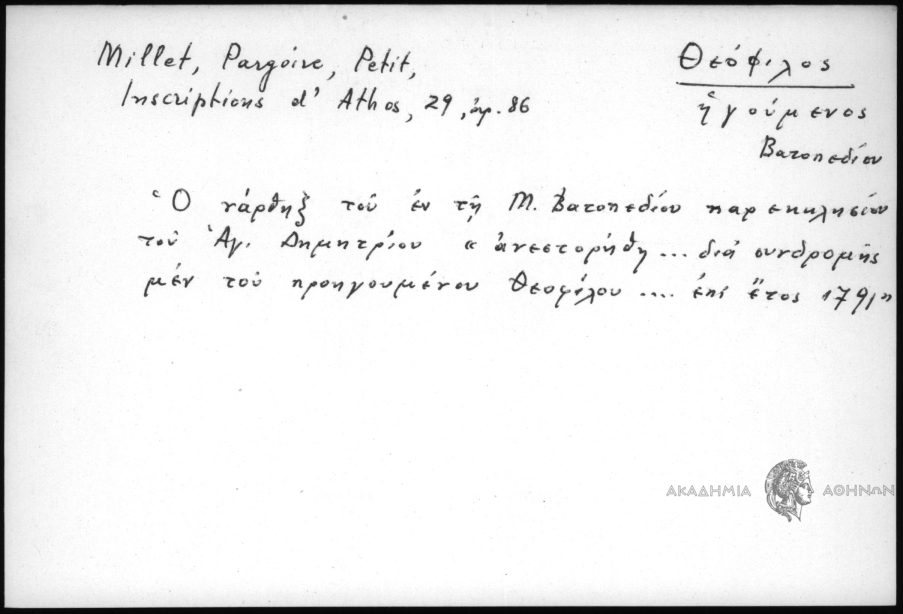 Millet, Pargoire, Petit,
Inscriptions d' Athos, 29, ἀρ. 86
Θεόφιλος
ἡγούμενος
Βατοπεδίου
Ὁ νάρθηξ τοῦ ἐν τῇ Μ. Βατοπεδίου παρεκκλησίου
τοῦ Ἁγ. Δημητρίου « ἀνεστορήθη ... διά συνδρομῆς
μέν τοῦ προηγουμένου Θεοφίλου .... ἐπί ἔτος 1791"
ΑΚΑΔΗΜΙΑ ΑΘΗΝΩΝ